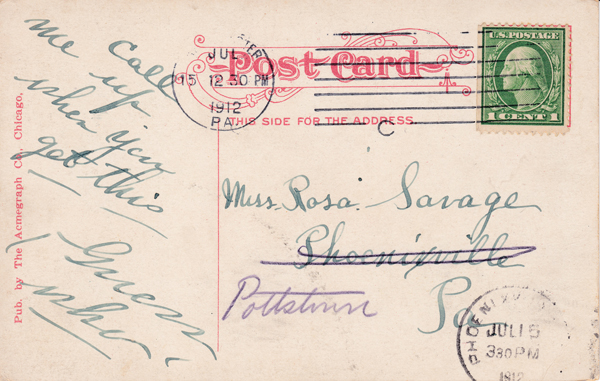 me call
up
when you
get this
Guess
who
Pub. by The Acmegraph Co., Chicago.
JUL
15 12 30 PM
1912
PA
Post Card
THIS SIDE FOR THE ADDRESS
C
U.S. POSTAGE
1 CENT 1
Miss. Rosa. Savage
Phoenixville
Pottstown
Pa
PHOENIX
JUL 15
330 PM
1912